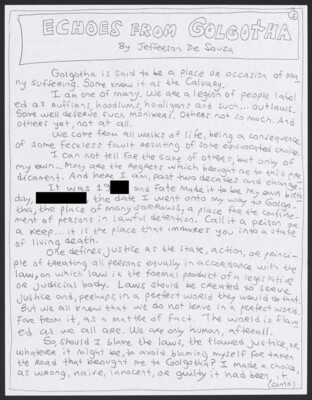 2
ECHOES FROM GOLGOTHA
By Jefferson De Souza
Golgotha is said to be a place or occasion of ma
ny suffering. Some know it as the Calvary.
I am one of many. We are a legion of people label
ed as ruffians, hoodlums, hooligans and such... outlaws.
Some well deserve such monikers. Others not so much. And
others yet, not at all.
We come from all walks of life, being a convergence
of some feckless fault resulting of some equivocated choice.
I can not tell for the sake of others, but only of
my own... my, are the regrets which brought me to this pre
dicament. And here I am, past two decades and change.
It was 19 and fate made it to be my own birth
day, the date I went onto my way to Golgo-
tha, the place of many sorrows, a place for the confine
ment of persons in lawful detention. Call it a prison or
a keep... it is the place that immures you into a state
of living death.
One defines justice as the state, action, or princi-
ple of treating all persons equally in accordance with the
law, on which law is the formal product of a legislative
or judicial body. Laws should be created to serve
justice and, perhaps, in a perfect world they would do that.
But we all know that we do not leave in a perfect world.
Far from it, as a matter of fact. The world is flaw
ed as we all are. We are only human, afterall.
So should I blame the laws, the flawed justice, or
whatever it might be, to avoid blaming myself for taken
the road that brought me to Golgotha? I made a choice,
as wrong, naive, innocent, or guilty it had been, it
(cont'd)